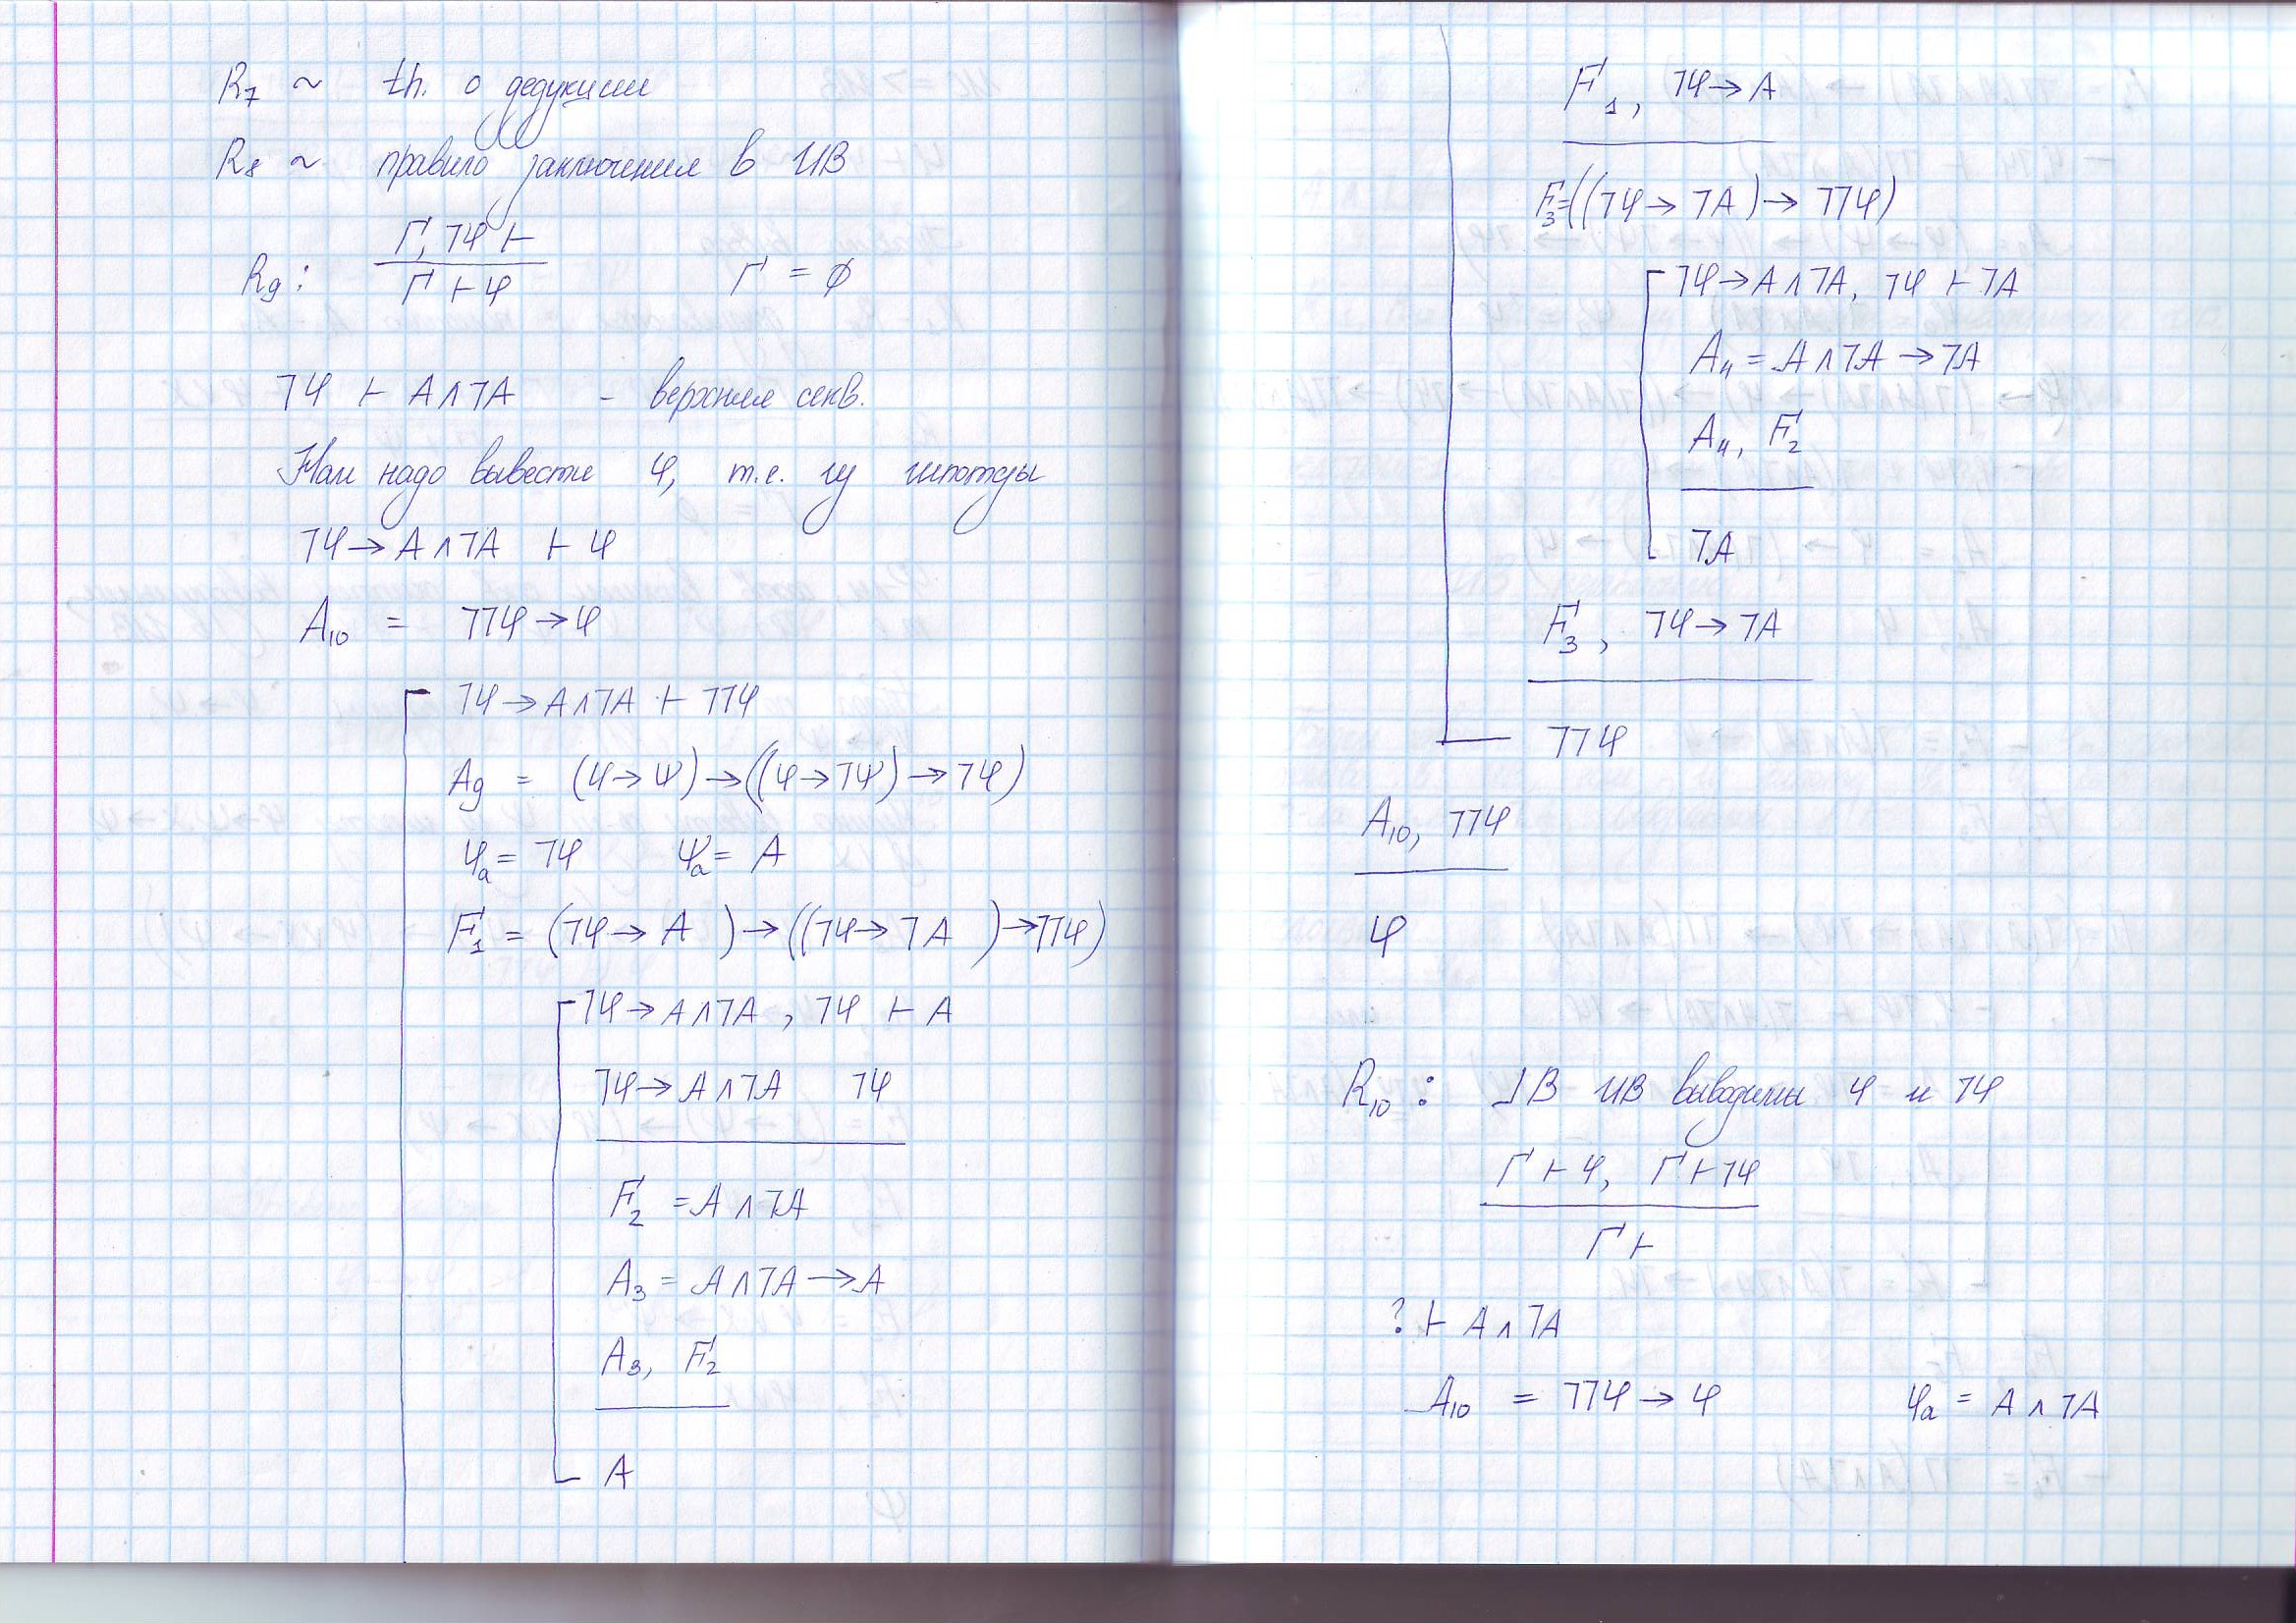 R₇ ~ th. о дедукции
R₈ ~ правило заключения в ИВ
R₉: Γ, ⏋φ ⊢
Γ ⊢ φ Γ = ∅
⏋φ ⊢ A∧⏋A - верхняя секв.
Нам надо вывести φ, т.е. из гипотезы
⏋φ → A∧⏋A ⊢ φ
A₁₀ = ⏋⏋φ → φ
⏋φ → A∧⏋A ⊢ ⏋⏋φ
A₉ = (φ → ψ) → ((φ → ⏋ψ) → ⏋φ)
φₐ = ⏋φ ψₐ = A
F₁ = (⏋φ → A ) → ((⏋φ → ⏋A ) → ⏋⏋φ)
⏋φ → A∧⏋A , ⏋φ ⊢ A
⏋φ → A∧⏋A ⏋φ
F₂ = A∧⏋A
A₃ = A∧⏋A → A
A₃, F₂
A
F₁, ⏋φ → A
F₃=((⏋φ → ⏋A) → ⏋⏋φ)
⏋φ → A∧⏋A, ⏋φ ⊢ ⏋A
A₄ = A∧⏋A → ⏋A
A₄, F₂
⏋A
F₃, ⏋φ → ⏋A
⏋⏋φ
A₁₀, ⏋⏋φ
φ
R₁₀: ⅃ В ИВ выводимы φ и ⏋φ
Γ ⊢ φ, Γ ⊢ ⏋φ
Γ ⊢
? ⊢ A∧⏋A
A₁₀ = ⏋⏋φ → φ φₐ = A∧⏋A